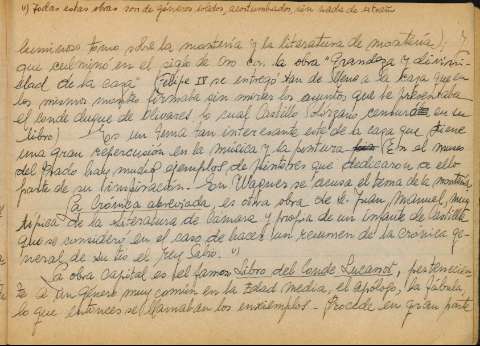 1) Todas estas obras son de géneros sólidos, acostumbrados, sin nada de extraño
luminoso tomo sobre la montería y la literatura de montería); y
que culminó en el siglo de Oro con la obra "Grandeza y divini-
dad de la caza" (Felipe IV se entregó tan de lleno a la caza que en
los mismos montes firmaba sin mirarlos los asuntos que le presentaba
el conde duque de Olivares, lo cual Castillo Solórzano censura en su
libro) Es un tema tan interesante este de la caza que tiene
una gran repercusión en la música y la pintura. En el museo
del Prado hay muchos ejemplos, de pintores que dedicaron a ello
parte de su inspiración. En Wagner se acusa el tema de la montería
La Crónica abreviada, es otra obra de D. Juan Manuel, muy
típica de la literatura de cámara y propia de un infante de Castilla
que se consideró en el caso de hacer un resumen de la crónica ge-
neral de su tío el Rey Sabio. 1)
La obra capital es el famoso Libro del Conde Lucanor, pertenecien-
te a un género muy común en la Edad Media, el apólogo, la fábula,
lo que entonces se llamaban los enxiemplos. - Procede en gran parte